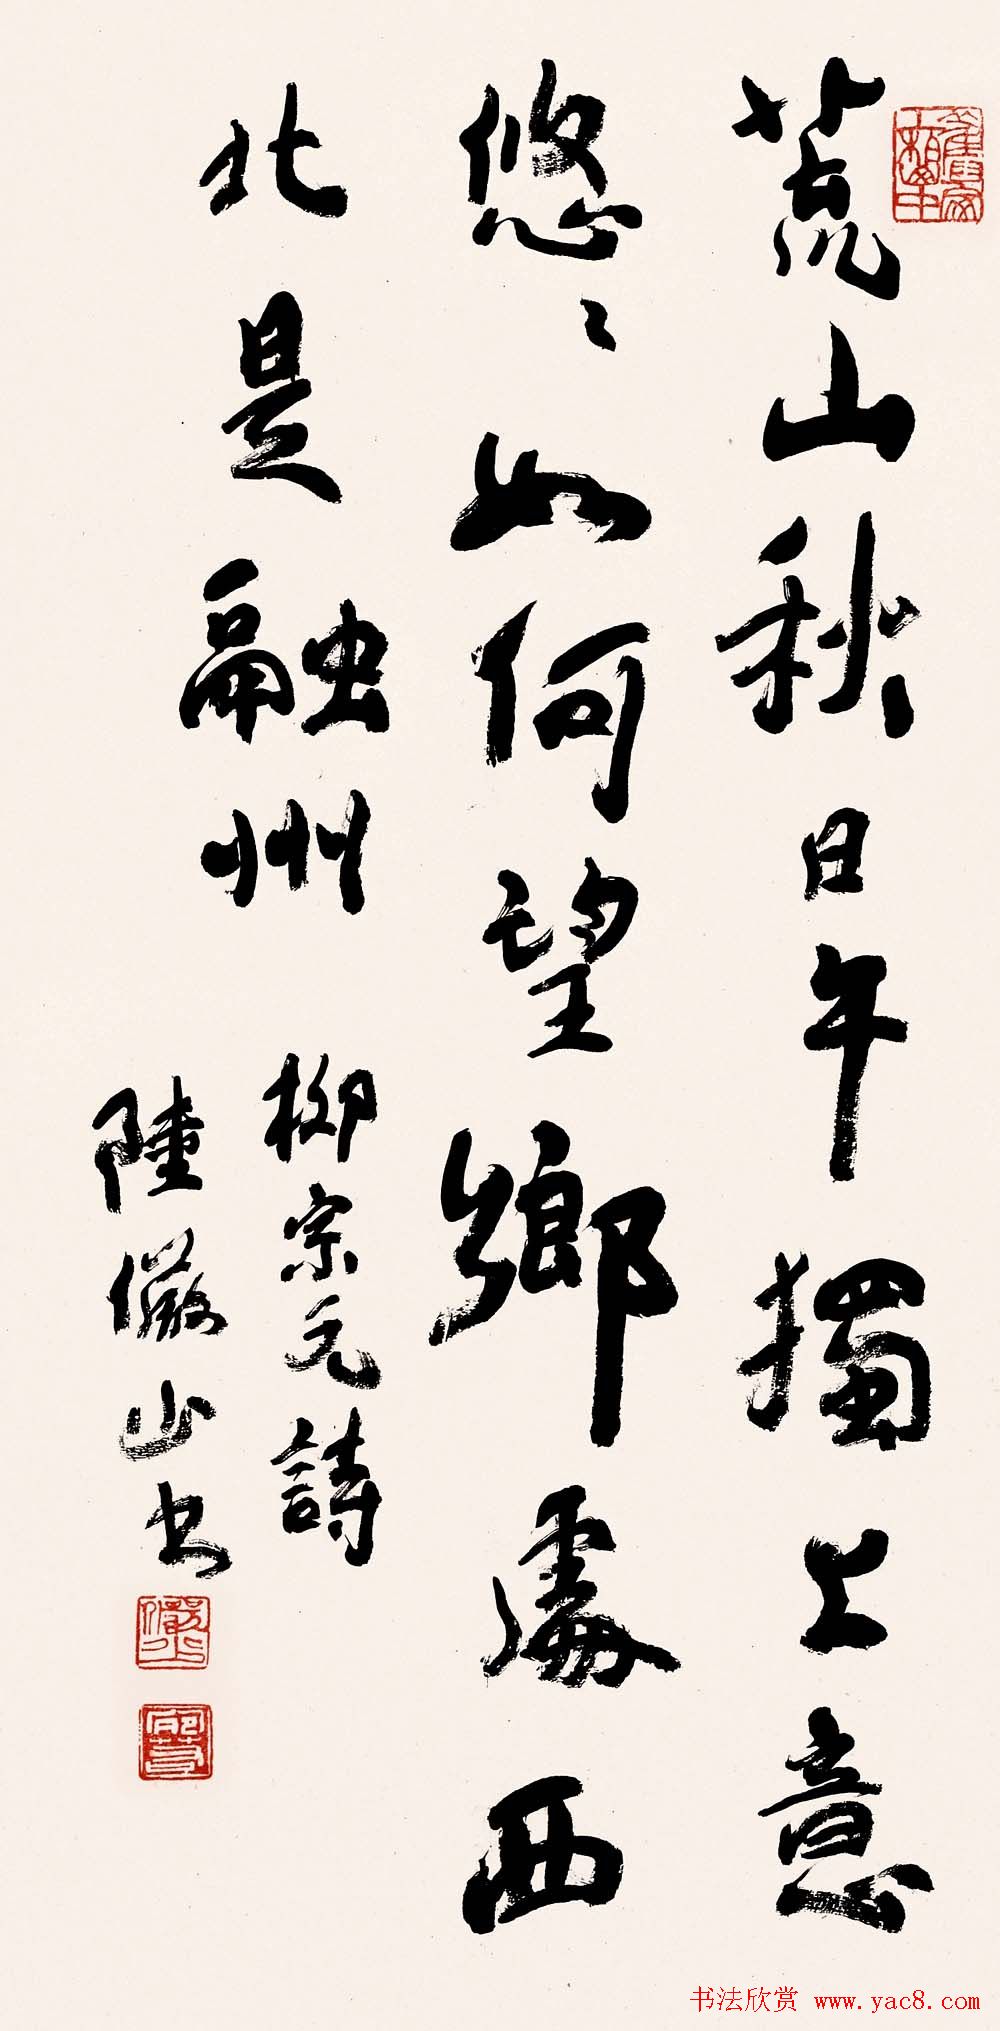 荒山秋日午獨上意
悠々如何望鄉處西
北是融州
柳宗元詩
陸儼山书
书法欣赏 www.yac8.com